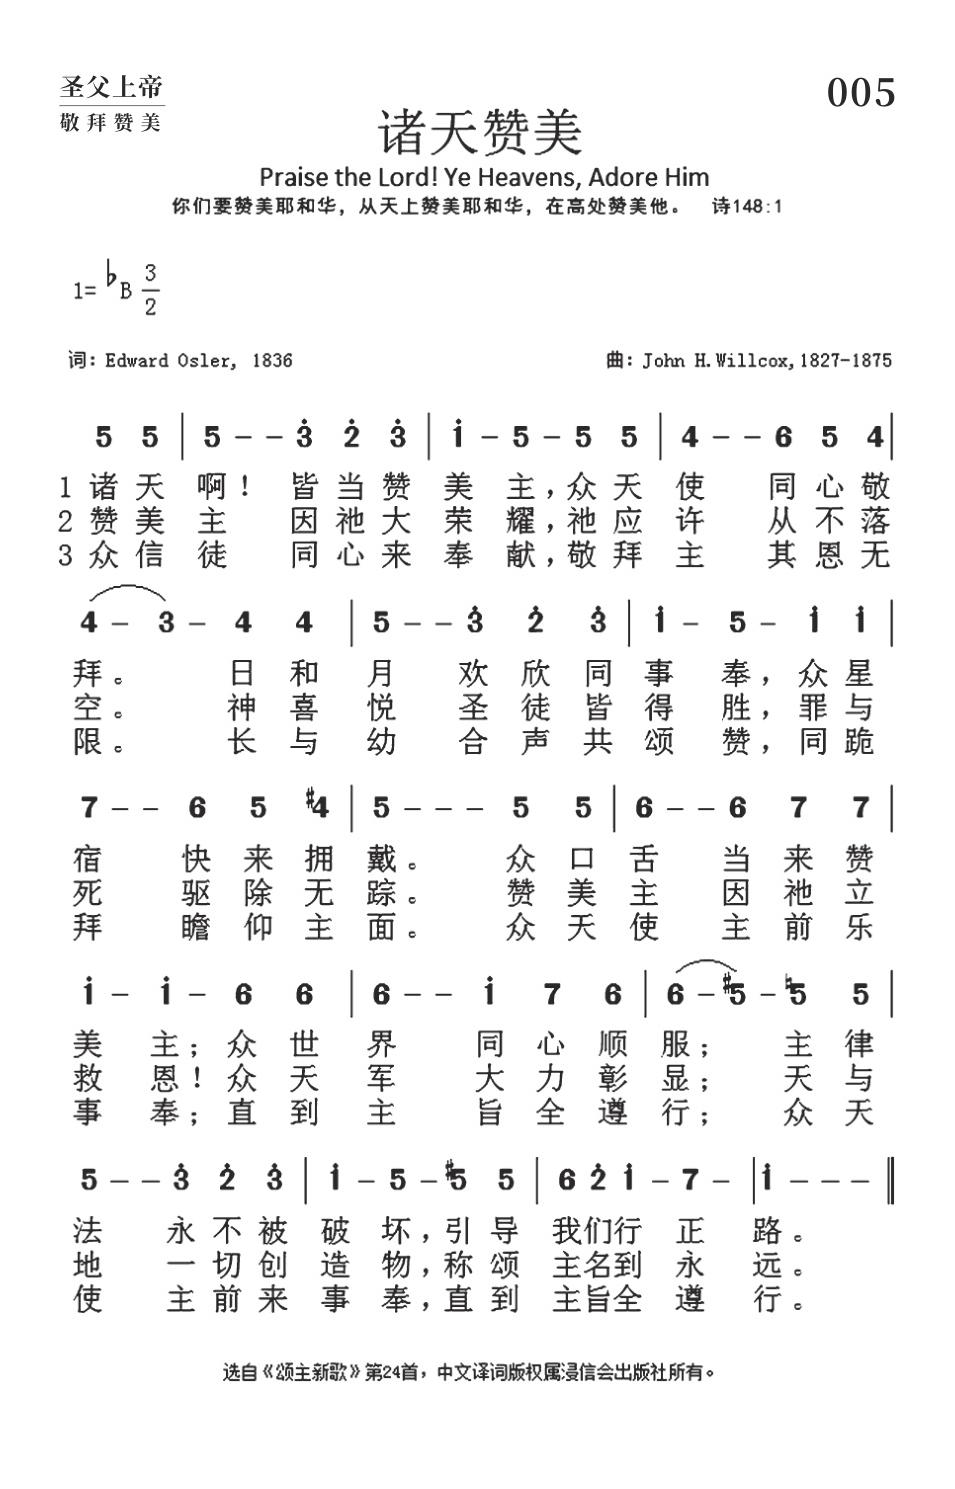 圣父上帝
敬拜赞美
005
诸天赞美
Praise the Lord! Ye Heavens, Adore Him
你们要赞美耶和华，从天上赞美耶和华，在高处赞美他。 诗148:1
1=♭B 3/2
词：Edward Osler, 1836
曲：John H.Willcox,1827-1875
5 5 | 5 - - 3̇ 2̇ 3̇ | 1̇ - 5 - 5 5 | 4 - - 6 5 4 |
1 诸天啊！皆当赞美主，众天使同心敬
2 赞美主因祂大荣耀，祂应许从不落
3 众信徒同心来奉献，敬拜主其恩无
4 - 3 - 4 4 | 5 - - 3̇ 2̇ 3̇ | 1̇ - 5 - 1̇ 1̇ |
拜。日和月欢欣同事奉，众星
空。神喜悦圣徒皆得胜，罪与
限。长与幼合声共颂赞，同跪
7 - - 6 5 #4 | 5 - - - 5 5 | 6 - - 6 7 7 |
宿快来拥戴。众口舌当来赞
死驱除无踪。赞美主因祂立
拜瞻仰主面。众天使主前乐
1̇ - 1̇ - 6 6 | 6 - - 1̇ 7 6 | 6 - #5 - ♮5 5 |
美主；众世界同心顺服；主律
救恩！众天军大力彰显；天与
事奉；直到主旨全遵行；众天
5 - - 3̇ 2̇ 3̇ | 1̇ - 5 - #5 5 | 6 2̇ 1̇ - 7 - | 1̇ - - - ‖
法永不被破坏，引导我们行正路。
地一切创造物，称颂主名到永远。
使主前来事奉，直到主旨全遵行。
选自《颂主新歌》第24首，中文译词版权属浸信会出版社所有。